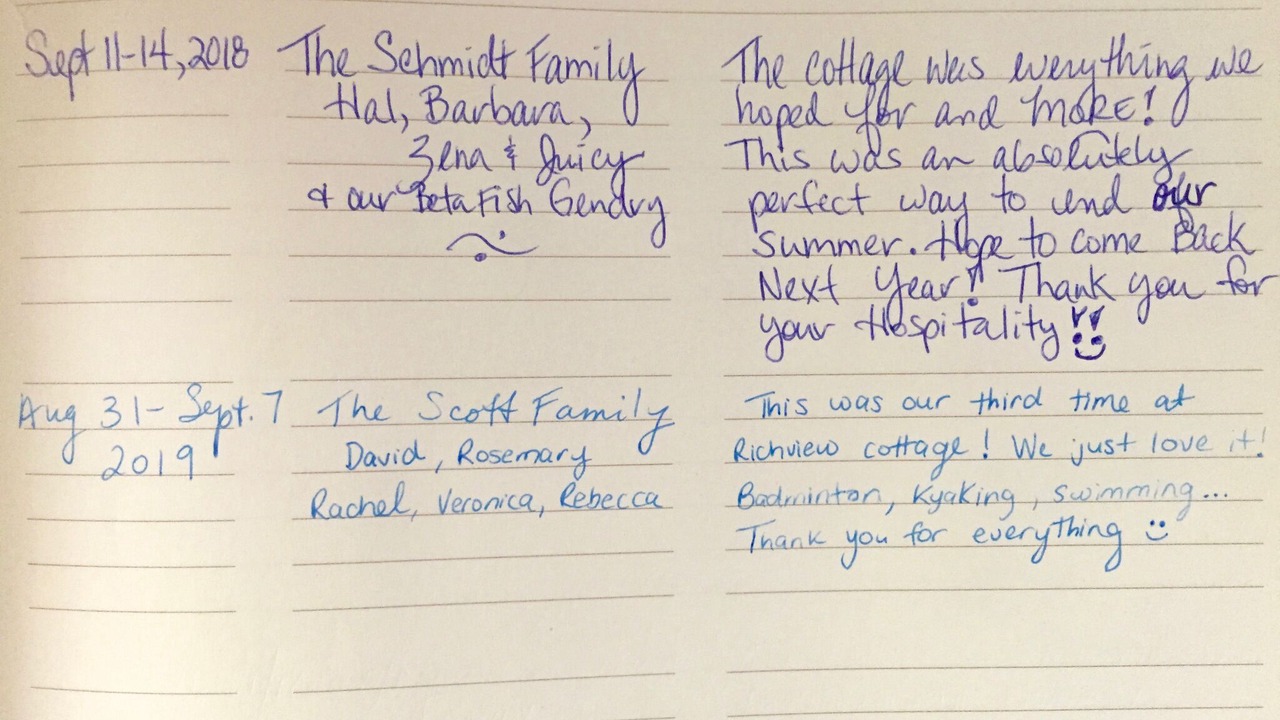 Sept 11-14, 2018
The Schmidt Family
Hal, Barbara,
Zena & Juicy
& our Beta Fish Gendry
The cottage was everything we
hoped for and MORE!
This was an absolutely
perfect way to end our
summer. Hope to come Back
Next Year! Thank you for
your Hospitality!!
Aug 31 - Sept. 7
2019
The Scott Family
David, Rosemary
Rachel, Veronica, Rebecca
This was our third time at
Richview cottage! We just love it!
Badminton, Kyaking, swimming...
Thank you for everything